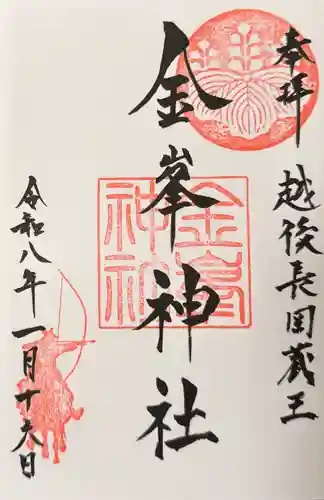 奉拝
越後長岡蔵王
金峯神社
金峯神社
令和八年一月十六日